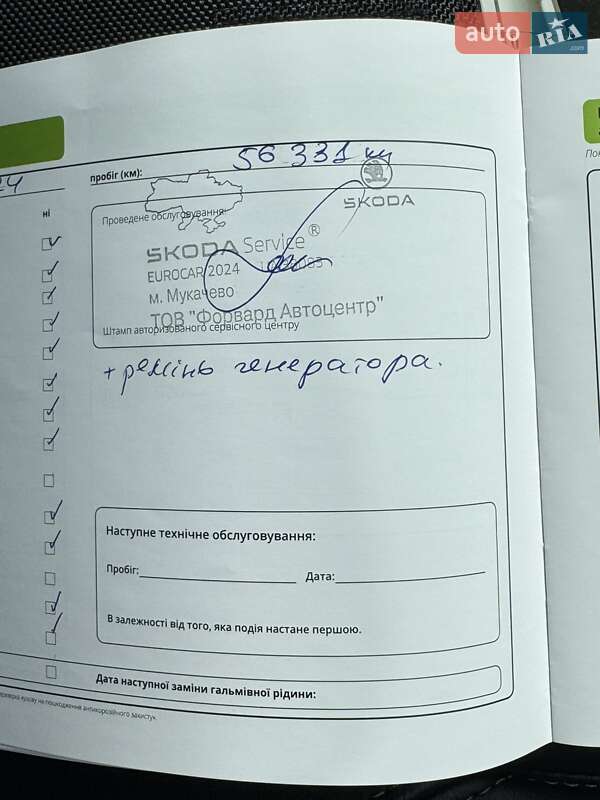 auto RIA
.com
24
пробіг (км): 56 331 км
ні
Проведене обслуговування:
SKODA
SKODA Service®
EUROCAR 2024
м. Мукачево
ТОВ "Форвард Автоцентр"
Штамп авторизованого сервісного центру
+ ремінь генератора.
Наступне технічне обслуговування:
Пробіг: Дата:
В залежності від того, яка подія настане першою.
Дата наступної заміни гальмівної рідини:
перевірка кузову на пошкодження антикорозійного захисту.